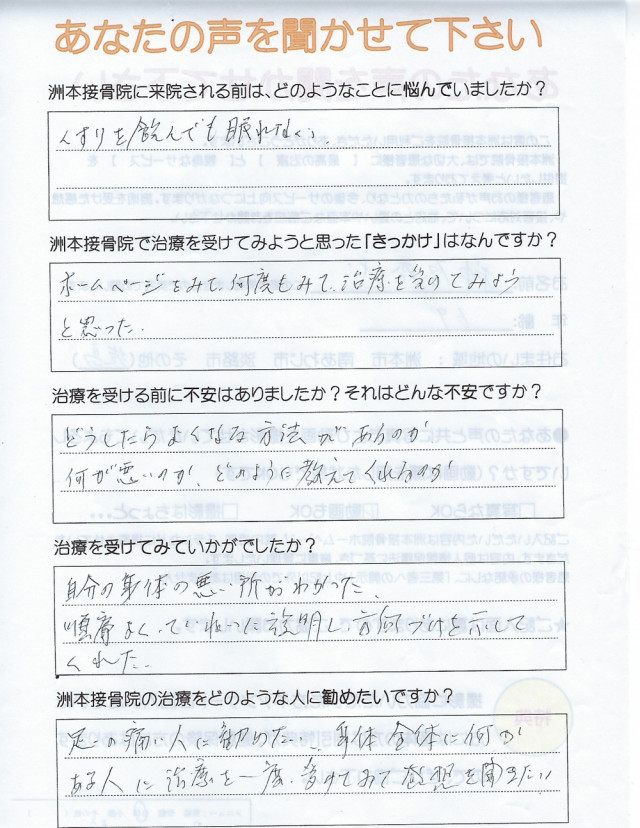 あなたの声を聞かせて下さい
洲本接骨院に来院される前は、どのようなことに悩んでいましたか？
くすりを飲んでも眠れない。
洲本接骨院で治療を受けてみようと思った「きっかけ」はなんですか？
ホームページをみて、何度もみて、治療を受けてみよう
と思った.
治療を受ける前に不安はありましたか？それはどんな不安ですか？
どうしたらよくなる方法があるのか
何が悪いのか、どのように教えてくれるのか
治療を受けてみていかがでしたか？
自分の身体の悪い所がわかった、
順序よく、ていねいに説明し方向づけを示して
くれた.
洲本接骨院の治療をどのような人に勧めたいですか？
足の痛い人に勧めたい、身体全体に何か
ある人に治療を一度、受けてみて感想を聞きたい